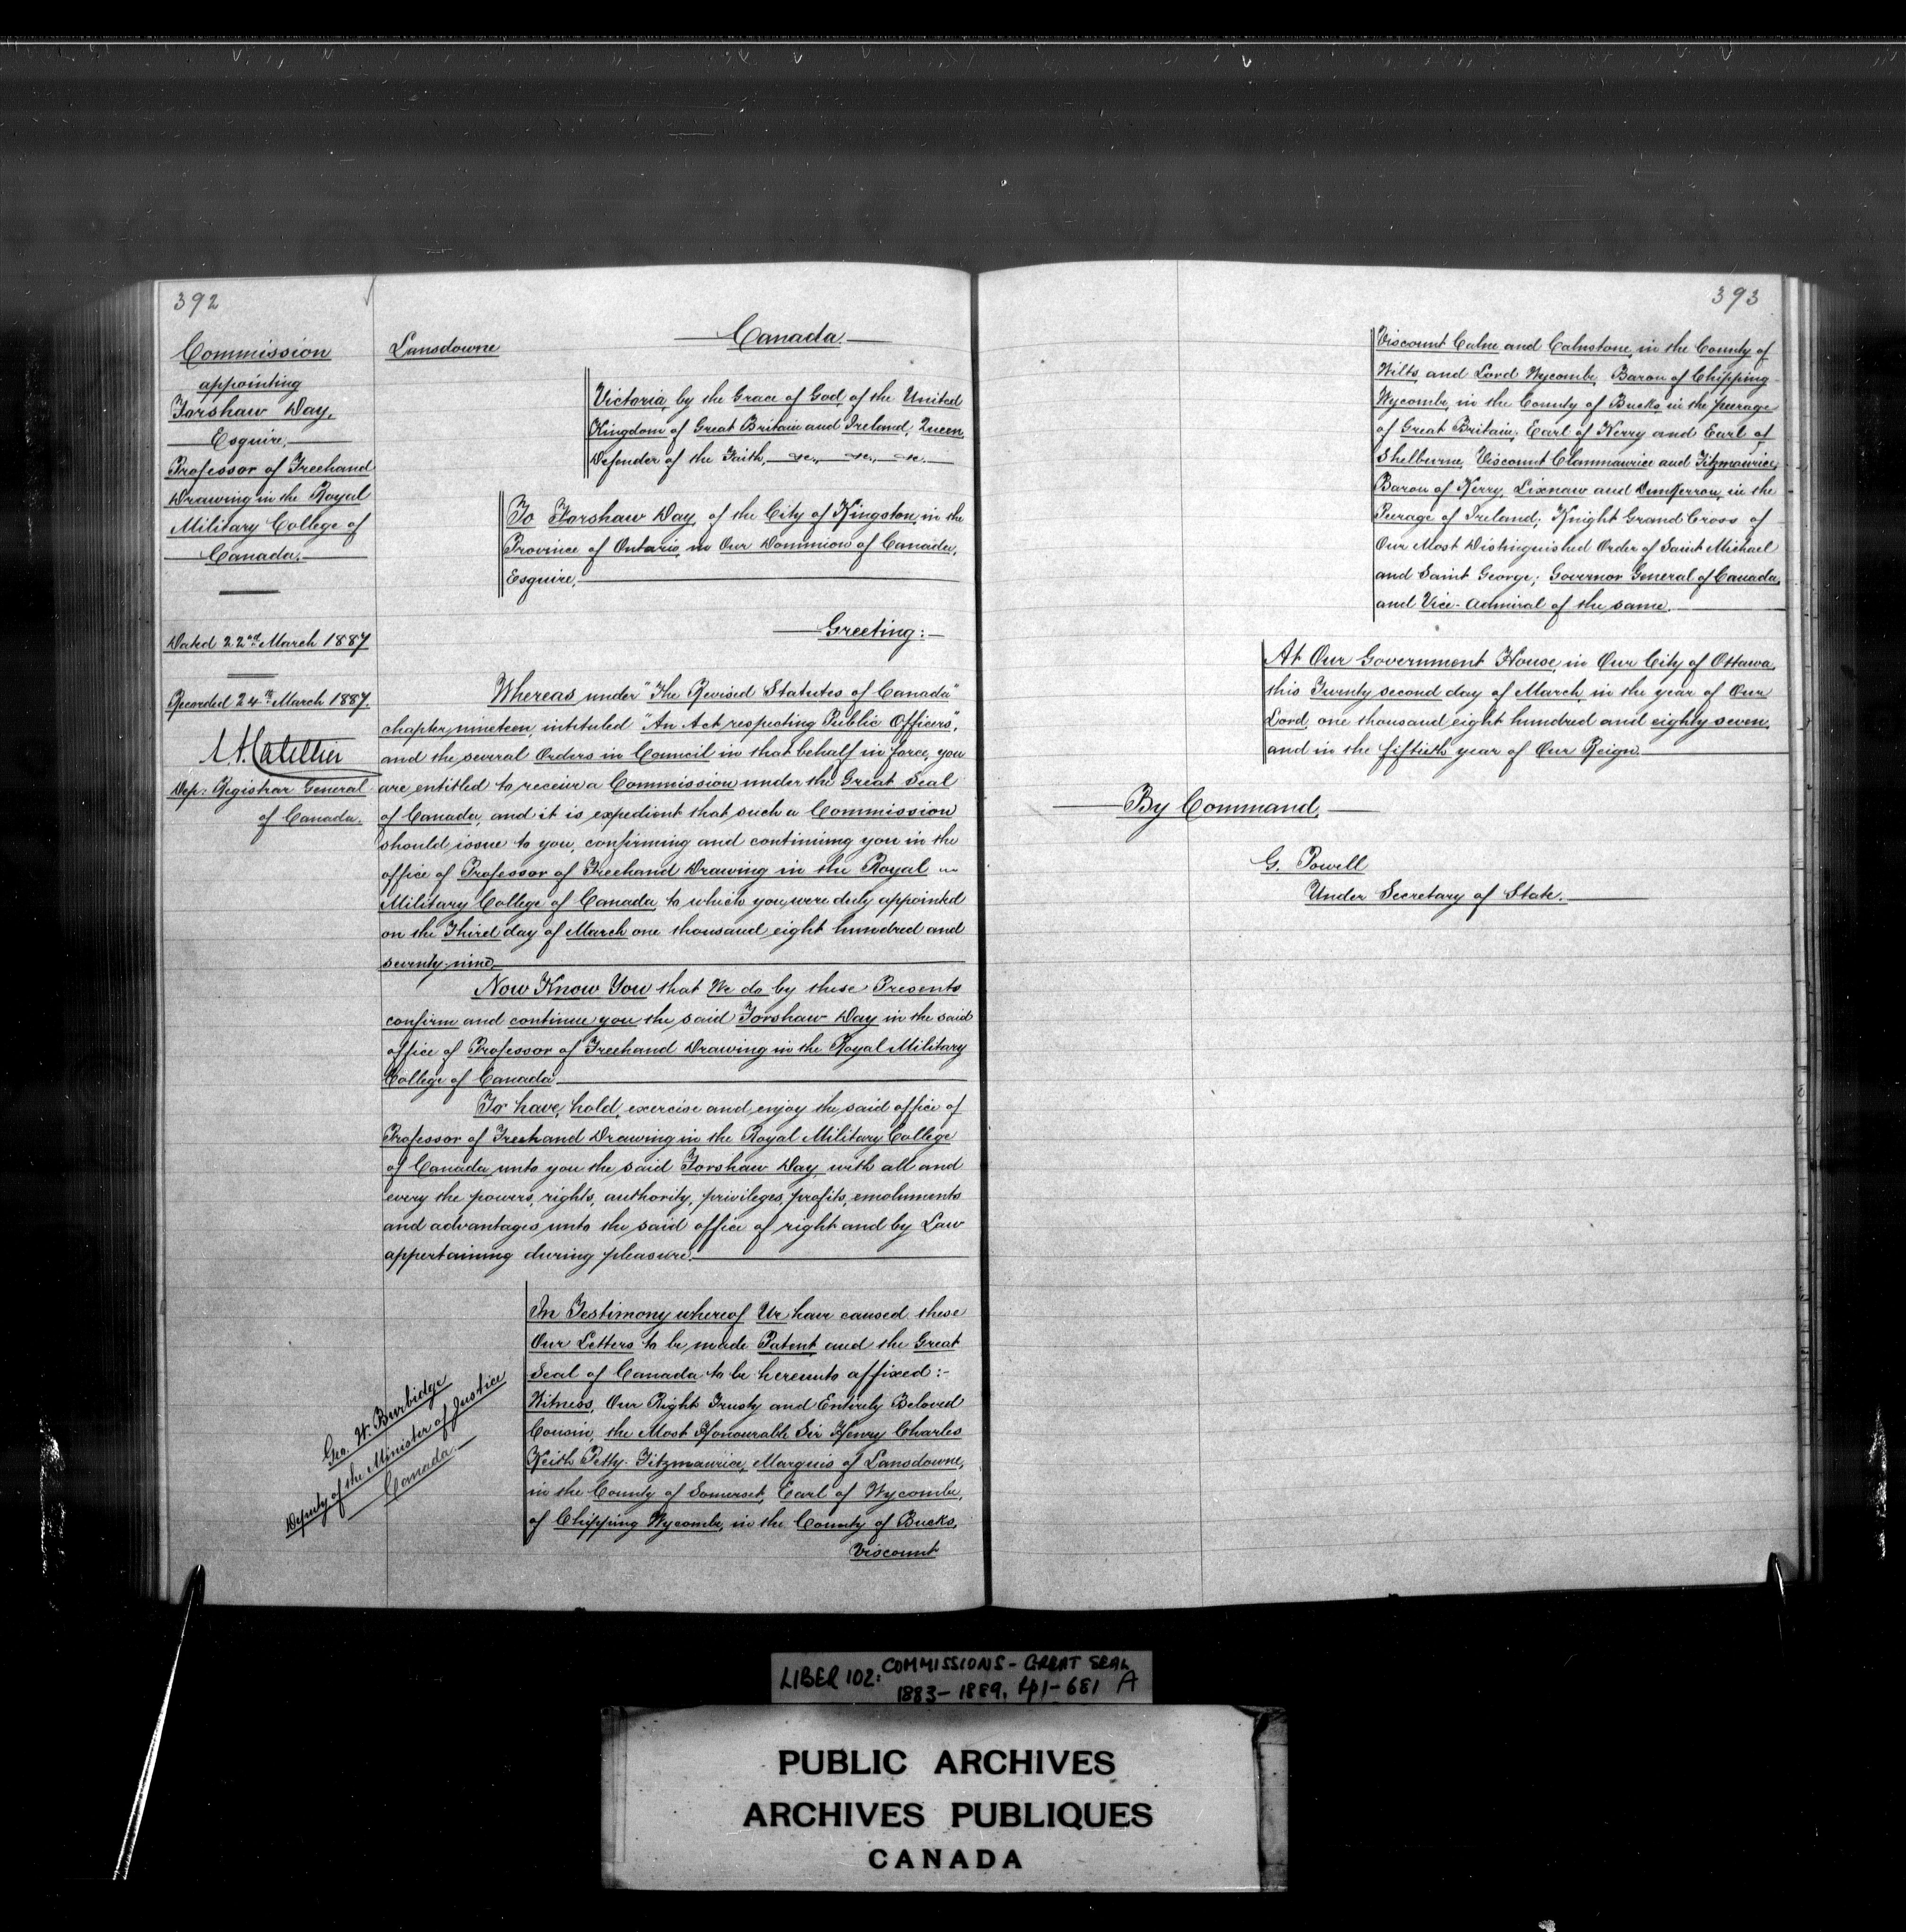 392
Commission
appointing
Forshaw Day,
Esquire,
Professor of Freehand
Drawing in the Royal
Military College of
Canada.
Dated 22nd March 1887
Recorded 24th March 1887.
Dep: Registrar General
of Canada.
Lansdowne
Canada.
Victoria, by the Grace of God, of the United
Kingdom of Great Britain and Ireland, Queen,
Defender of the Faith, &c., &c., &c.
To Forshaw Day, of the City of Kingston, in the
Province of Ontario, in Our Dominion of Canada,
Esquire,
Greeting:
Whereas under "The Revised Statutes of Canada"
chapter nineteen, intituled "An Act respecting Public Officers",
and the several Orders in Council in that behalf in force, you
are entitled to receive a Commission under the Great Seal
of Canada, and it is expedient that such a Commission
should issue to you, confirming and continuing you in the
office of Professor of Freehand Drawing in the Royal
Military College of Canada, to which you were duly appointed
on the Third day of March one thousand eight hundred and
seventy-nine,
Now Know You that We do by these Presents
confirm and continue you the said Forshaw Day in the said
office of Professor of Freehand Drawing in the Royal Military
College of Canada
To have, hold, exercise and enjoy the said office of
Professor of Freehand Drawing in the Royal Military College
of Canada, unto you the said Forshaw Day, with all and
every the powers, rights, authority, privileges, profits, emoluments
and advantages unto the said office of right and by Law
appertaining during pleasure.
In Testimony whereof We have caused these
Our Letters to be made Patent and the Great
Seal of Canada to be hereunto affixed:-
Witness, Our Right Trusty and Entirely Beloved
Cousin, the Most Honourable Sir Henry Charles
Keith Petty-Fitzmaurice, Marquis of Lansdowne,
in the County of Somerset, Earl of Wycombe,
of Chipping Wycombe, in the County of Bucks,
Viscount
Geo. W. Burbidge
Deputy of the Minister of Justice
Canada.
393
Viscount Calne and Calnstone, in the County of
Wilts, and Lord Wycombe, Baron of Chipping
Wycombe, in the County of Bucks, in the peerage
of Great Britain; Earl of Kerry and Earl of
Shelburne, Viscount Clanmaurice and Fitzmaurice,
Baron of Kerry, Lixnaw and Dunkerron, in the
Peerage of Ireland; Knight Grand Cross of
Our Most Distinguished Order of Saint Michael
and Saint George; Governor General of Canada,
and Vice-Admiral of the same.
At Our Government House, in Our City of Ottawa,
this Twenty second day of March, in the year of Our
Lord, one thousand eight hundred and eighty seven,
and in the fiftieth year of Our Reign
By Command,
G. Powell
Under Secretary of State.
LIBER 102: COMMISSIONS - GREAT SEAL
1883-1889, 491-681 A
PUBLIC ARCHIVES
ARCHIVES PUBLIQUES
CANADA